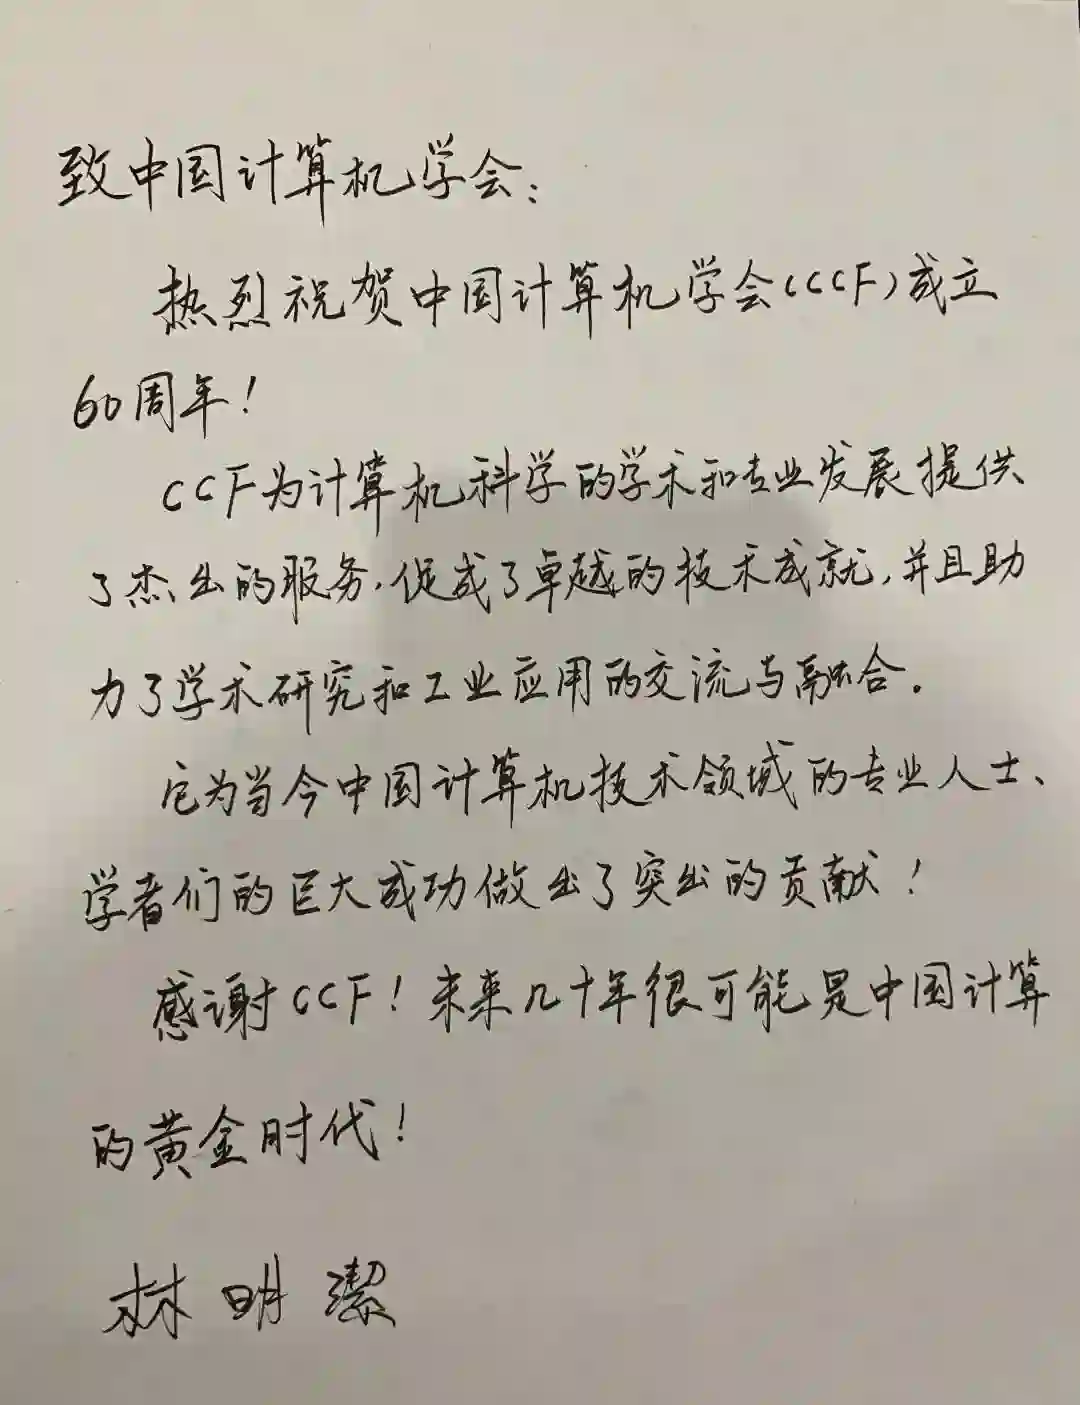 致中国计算机学会:
热烈祝贺中国计算机学会(CCF)成立
60周年!
CCF为计算机科学的学术和专业发展提供
了杰出的服务,促成了卓越的技术成就,并且助
力了学术研究和工业应用的交流与融合.
它为当今中国计算机技术领域的专业人士、
学者们的巨大成功做出了突出的贡献!
感谢CCF!未来几十年很可能是中国计算
的黄金时代!
林明潔